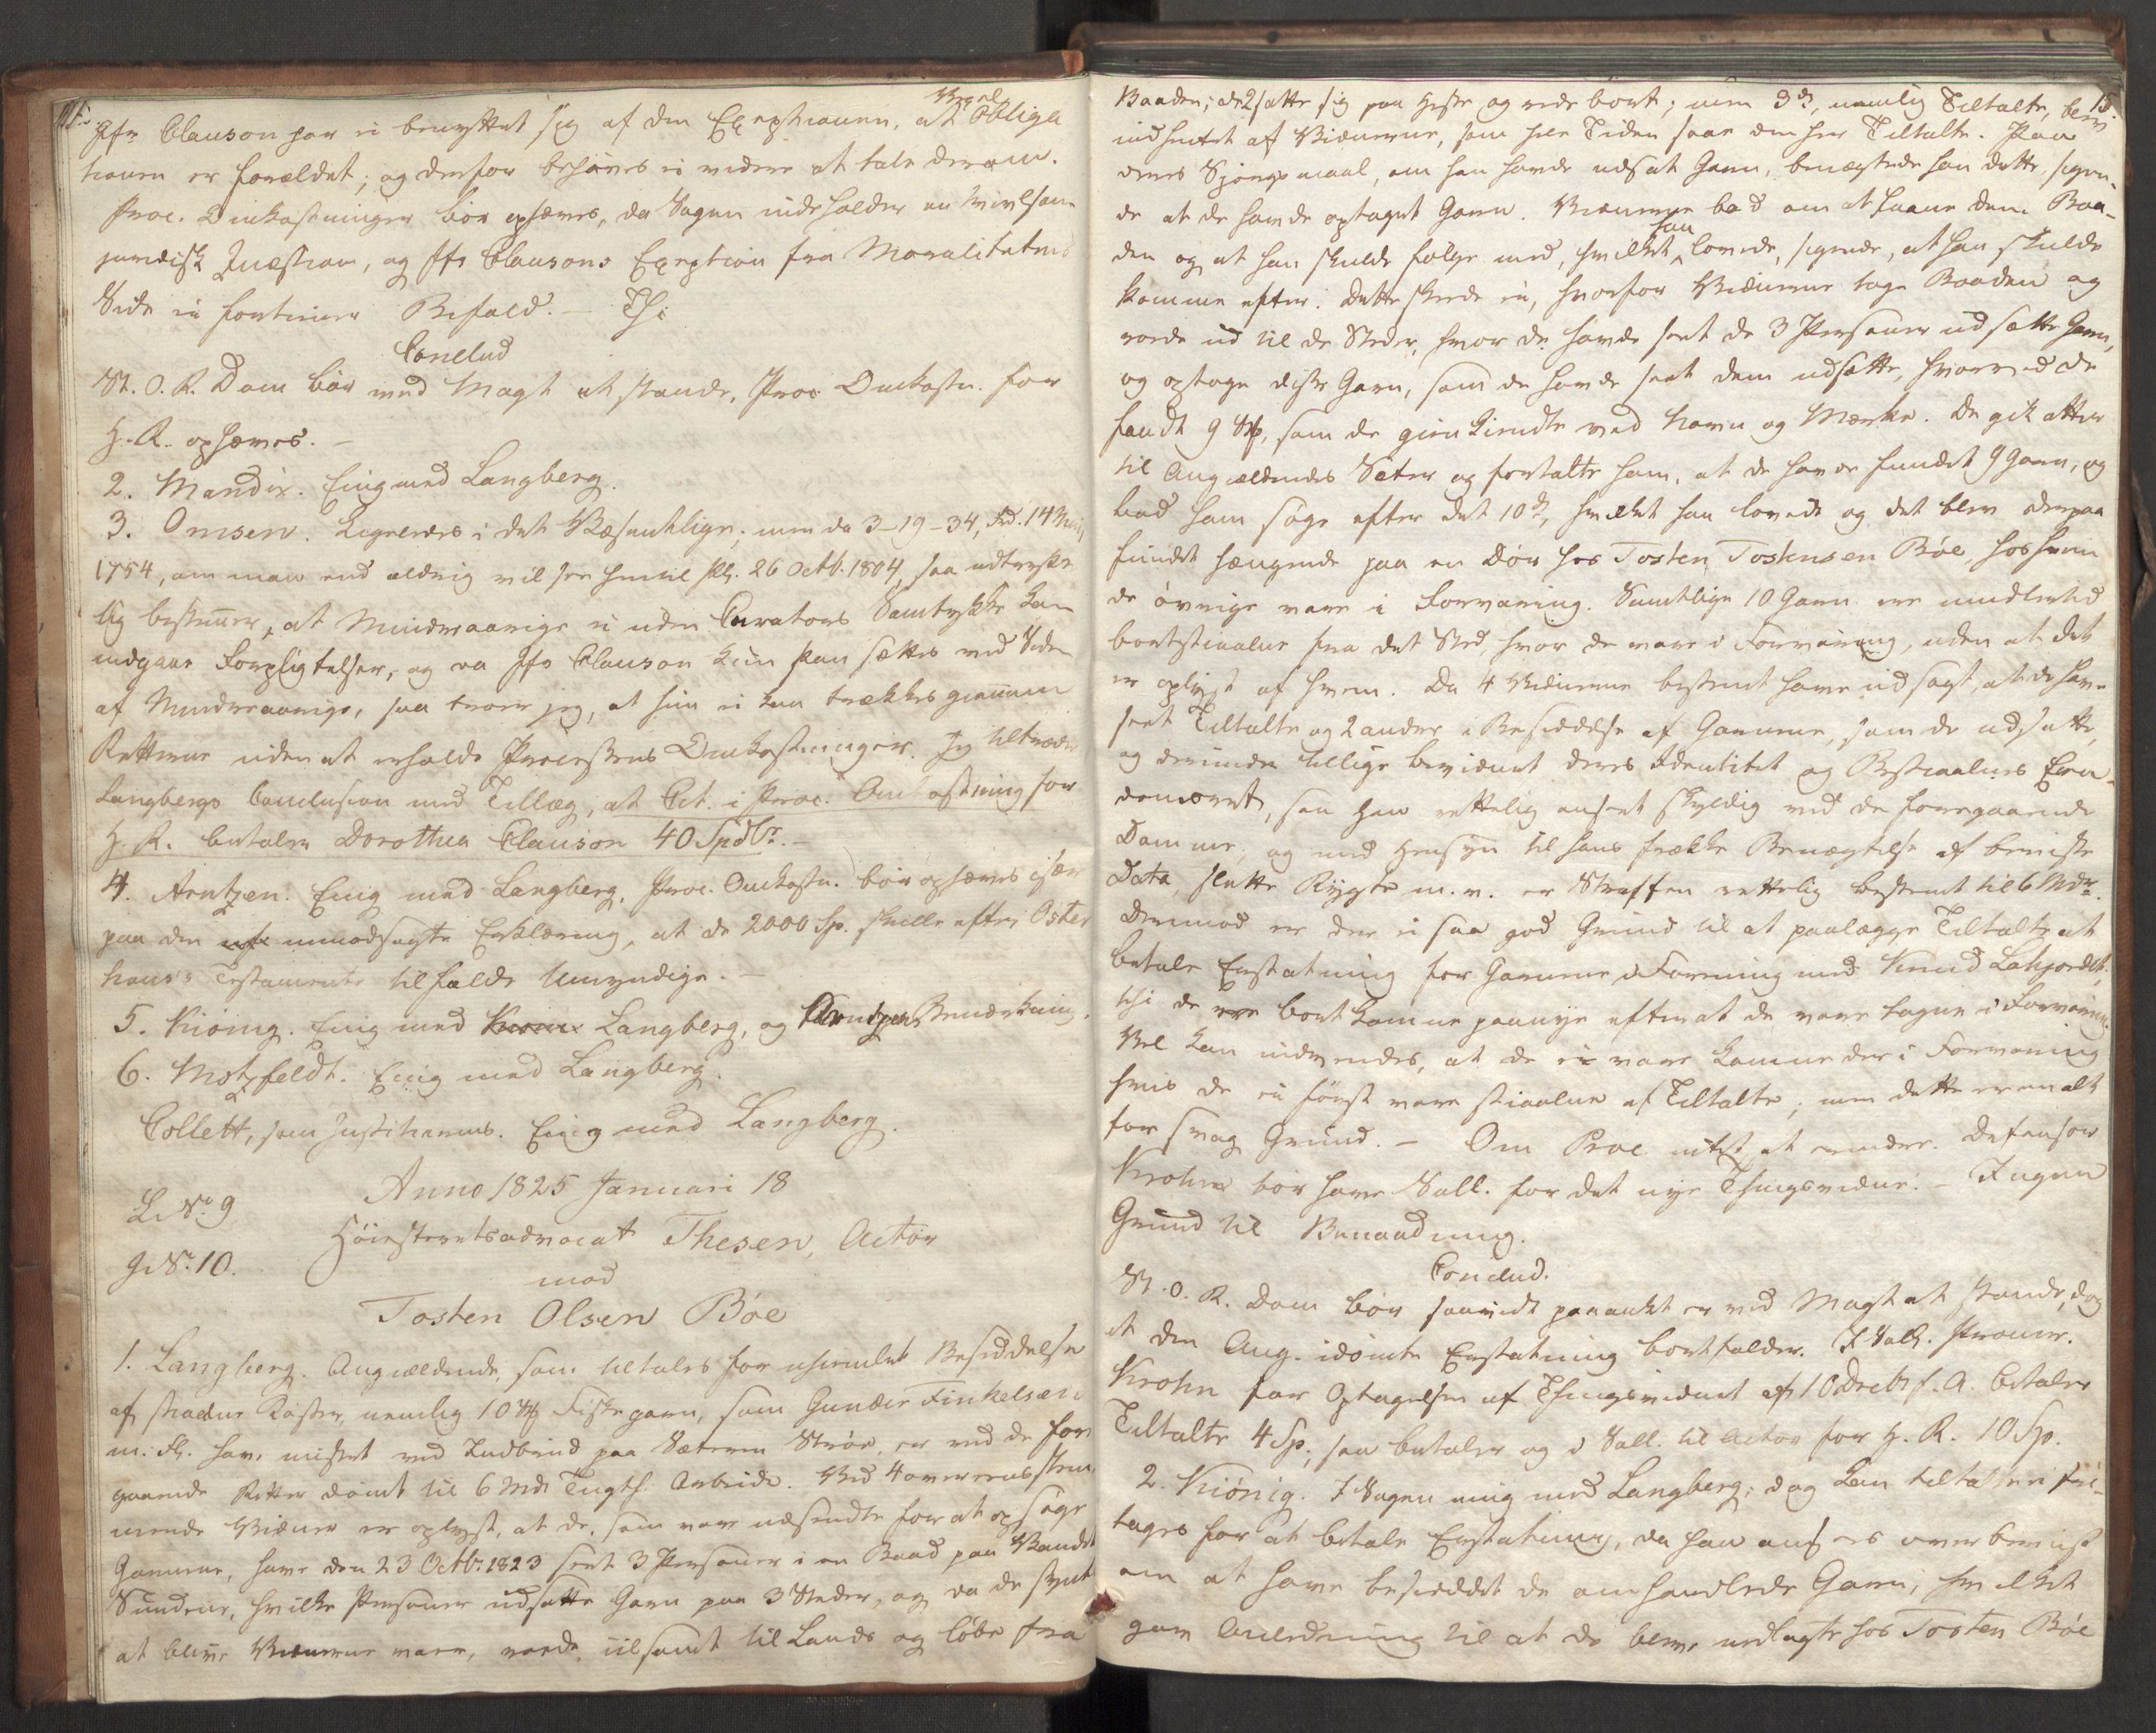 Jfr Clauson har ei benyttet sig af den Exception, at Vexel Obliga
tionen er forældet; og derfor behøves ei videre at tale derom.
Proc. Omkostninger bør ophæves, da Sagen indeholder en tvivlsom
juridisk Quæstion, og Jfr Clausons Exception fra Moralitetens
Side ei fortiener Bifald. – Thi
Conclud
St. O. R. Dom bør ved Magt at stande, Proc Omkostn. for
H. R. ophæves. –
2. Mandix. Enig med Langberg.
3. Omsen. Ligeledes i det Væsentlige; men da 3-19-34, Frd. 14 Mai
1754, om man end aldrig vil see hen til Pl. 26 Octb. 1804, saa udtrykke
lig bestemer, at Mindreaarige ei uden Curators Samtykke kan
indgaae Forpligtelser, og da Jfr Clauson kun kan sættes ved Siden
af Mindreaarige, saa troer jeg, at hun ei kan trækkes gienem
Retterne uden at erholde Processens Omkostninger. Jeg tiltræder
Langbergs Conclusion med Tillæg, at Cit. i Proc. Omkostning for
H. R. betaler Dorothea Clauson 40 Spdlr. –
4. Arntzen. Enig med Langberg. Proc. Omkostn. bør ophæves især
paa den uimodsagte Erklæring, at de 2000 Sp. skulle efter Oster
haus's Testamente tilfalde Umyndige. –
5. Kiönig. Enig med Langberg, og Arntzens Bemærkning.
6. Motzfeldt. Enig med Langberg.
Collett, som Justitiarius. Enig med Langberg.
Anno 1825 Januari 18
L. No. 9
Höiesteretsadvocat Thesen, Actor
No. 10.
mod
Tosten Olsen Böe
1. Langberg. Angieldende, som tiltales for uhiemlet Besiddelse
af stiaalne Koster, nemlig 10 Fiskegarn, som Gunder Finkelsen
m. Fl. have mistet ved Indbrud paa Sæteren Ströe, er ved de fore
gaaende Retter dömt til 6 Mdr Tugth. Arbeide. Ved 4 overeensstem
mende Vidner er oplyst, at de, som vare udsendte for at opsöge
Garnene, have den 23 Octbr. 1823 seet 3 Personer i en Baad paa
Sundene, hvilke Personer udsatte Garn paa 3 Steder, og da de
at blive Vidnerne vaer, roede iilsomt til Lands og löbe fra
15.
Baaden; de 2 satte sig paa Heste og rede bort; men 3de, nemlig Tiltalte, blev
indhentet af Vidnerne, som hele Tiden saae den her Tiltalte. Paa
deres Spörgsmaal, om han havde udsat Garn, benægtede han dette, sigen-
de at de havde optaget Garn. Vidnerne bad om at laane dem Baa-
den og at han skulde fölge med, hvilket han lovede, sigende, at han skulde
komme efter. Dette skede ei, hvorfor Vidnerne toge Baaden og
roede ud til de Steder, hvor de havde seet de 3 Personer udsætte Garn,
og optoge disse Garn, som de havde seet dem udsætte, hvorved de
fandt 9 , som de gienkiendte ved Navn og Mærke. De gik atter
til Angieldendes Sæter og fortalte ham, at de havde fundet 9 Garn, og
bad ham söge efter det 10de, hvilket han lovede og det blev derpaa
fundet hængende paa en Dör hos Tosten Tostensen Böe, hos hvem
de övrige vare i Forvaring. Samtlige 10 Garn ere imidlertid
bortstiaalne fra det Sted, hvor de vare i Forvaring, uden at det
er oplyst af hvem. Da 4 Vidnerne bestemt have udsagt, at de have
seet Tiltalte og 2 andre i Besiddelse af Garnene, som de udsatte,
og desuden tillige bevidnet deres Identitet og
, saa er han rettelig anseet skyldig ved de foregaaende
Domme, og med Hensyn til hans frække Benægtelse af beviiste
Data, slette Rygte m. v. er Straffen rettelig bestemt til 6 Mdr.
Derimod er der ei saa god Grund til at paalægge Tiltalte at
betale Erstatning for Garnene i Forening med Knud
thi de ere bortkomne paanye efterat de vare tagne i Forvaring.
Vel kan indvendes, at de ei vare komne der i Forvaring
hvis de ei först vare stiaalne af Tiltalte; men dette er en alt
for svag Grund. – Om Proc intet at erindre. Defensor
Krohn bör have Sall. for det nye Thingsvidne. – Ingen
Grund til Benaadning.
Conclud.
St. O. R. Dom bör saavidt paaanket er ved Magt at stande, dog
at den Ang. idömte Erstatning bortfalder. I Sall. Procur.
Krohn for Optagelsen af Thingsvidnet af 10 Decbr f. A. betaler
Tiltalte 4 Sp, saa betaler og i Sall. til Actor for H. R. 10 Sp.
2. Kiönig. I Sagen enig med Langberg; dog kan tiltalte ei fri-
tages for at betale Erstatning, da han ansees overbeviist
om at have besiddet de omhandlede Garn; hvilket
gav Anledning til at de bleve nedlagte hos Tosten Böe